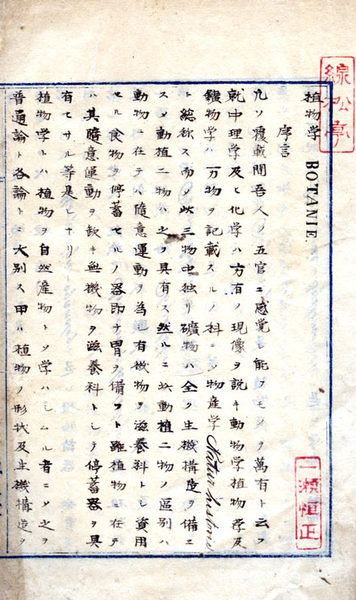 松亭
植物学 BOTANIE.
序言
凡ソ覆載間吾人ノ五官ニ感覚シ能フモノヲ萬有ト云フ
就中理学及ヒ化学ハ万有ノ現像ヲ説キ動物学植物学及
鑛物学ハ万物ヲ記載スルノ科ニ〆物産学 Natur
ト総称ス而〆此三物中独リ礦物ハ全ク生機構造ヲ備ヘ
ス動植二物ハ之ヲ具有ス然ルニ此動植二物ノ区別ハ
動物ニ在テハ随意運動ヲ為シ有機物ヲ滋養料トシ資用
セル食物ヲ停蓄セルノ器即チ胃ヲ備フト雖植物ニ在テ
ハ其隨意運動ヲ欠キ無機物ヲ滋養料トシテ停蓄器ヲ具
有セサル等是レナリ
植物学トハ植物ヲ自然産物トシ学ハシムル者ニ〆之ヲ
普通論ト各論トニ大別ス甲ハ植物ノ形状及生機構造ヲ
一瀬恒正